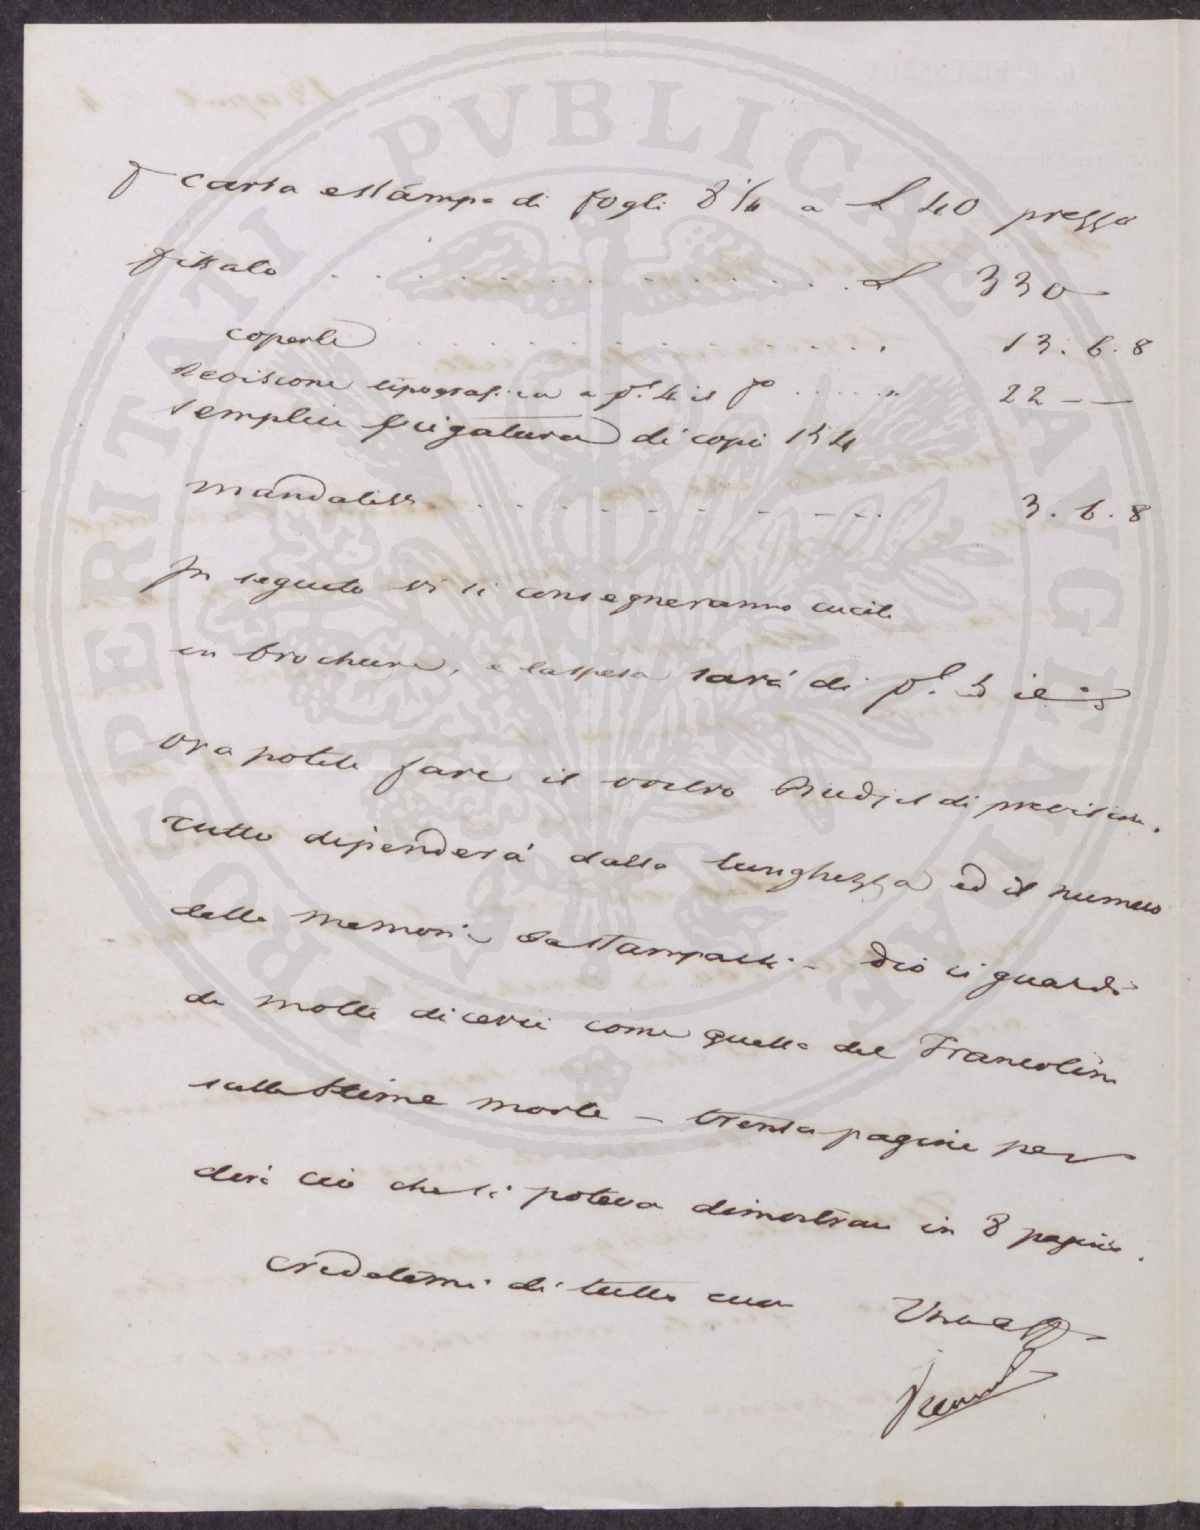 PROSPERITATI PVBLICAE AVGENDAE
p carta e stampa di fogli 8 1/4 a L 40 prezzo
fissato . . . . . . . . . . . . . L 330
coperte . . . . . . . . . . . . . 13. 6. 8
Revisione tipografica a pl. 4 il fo . . . . . " 22 — —
semplice piegatura di copie 154
mandatevi . . . . . . . . . . 3. 6. 8
In seguito vi si consegneranno cucite
in brochure, e la spesa sarà di pl. 5 il
Ora potete fare il vostro Budjet di previsione.
Tutto dipenderà dalla lunghezza ed il numero
delle memorie da stamparsi - Dio ci guardi
da molte dicerie come quella del Francolini
sulle Stime morte - trenta pagine per
dire ciò che si poteva dimostrare in 8 pagine.
Credetemi di tutto cuore Vro aff